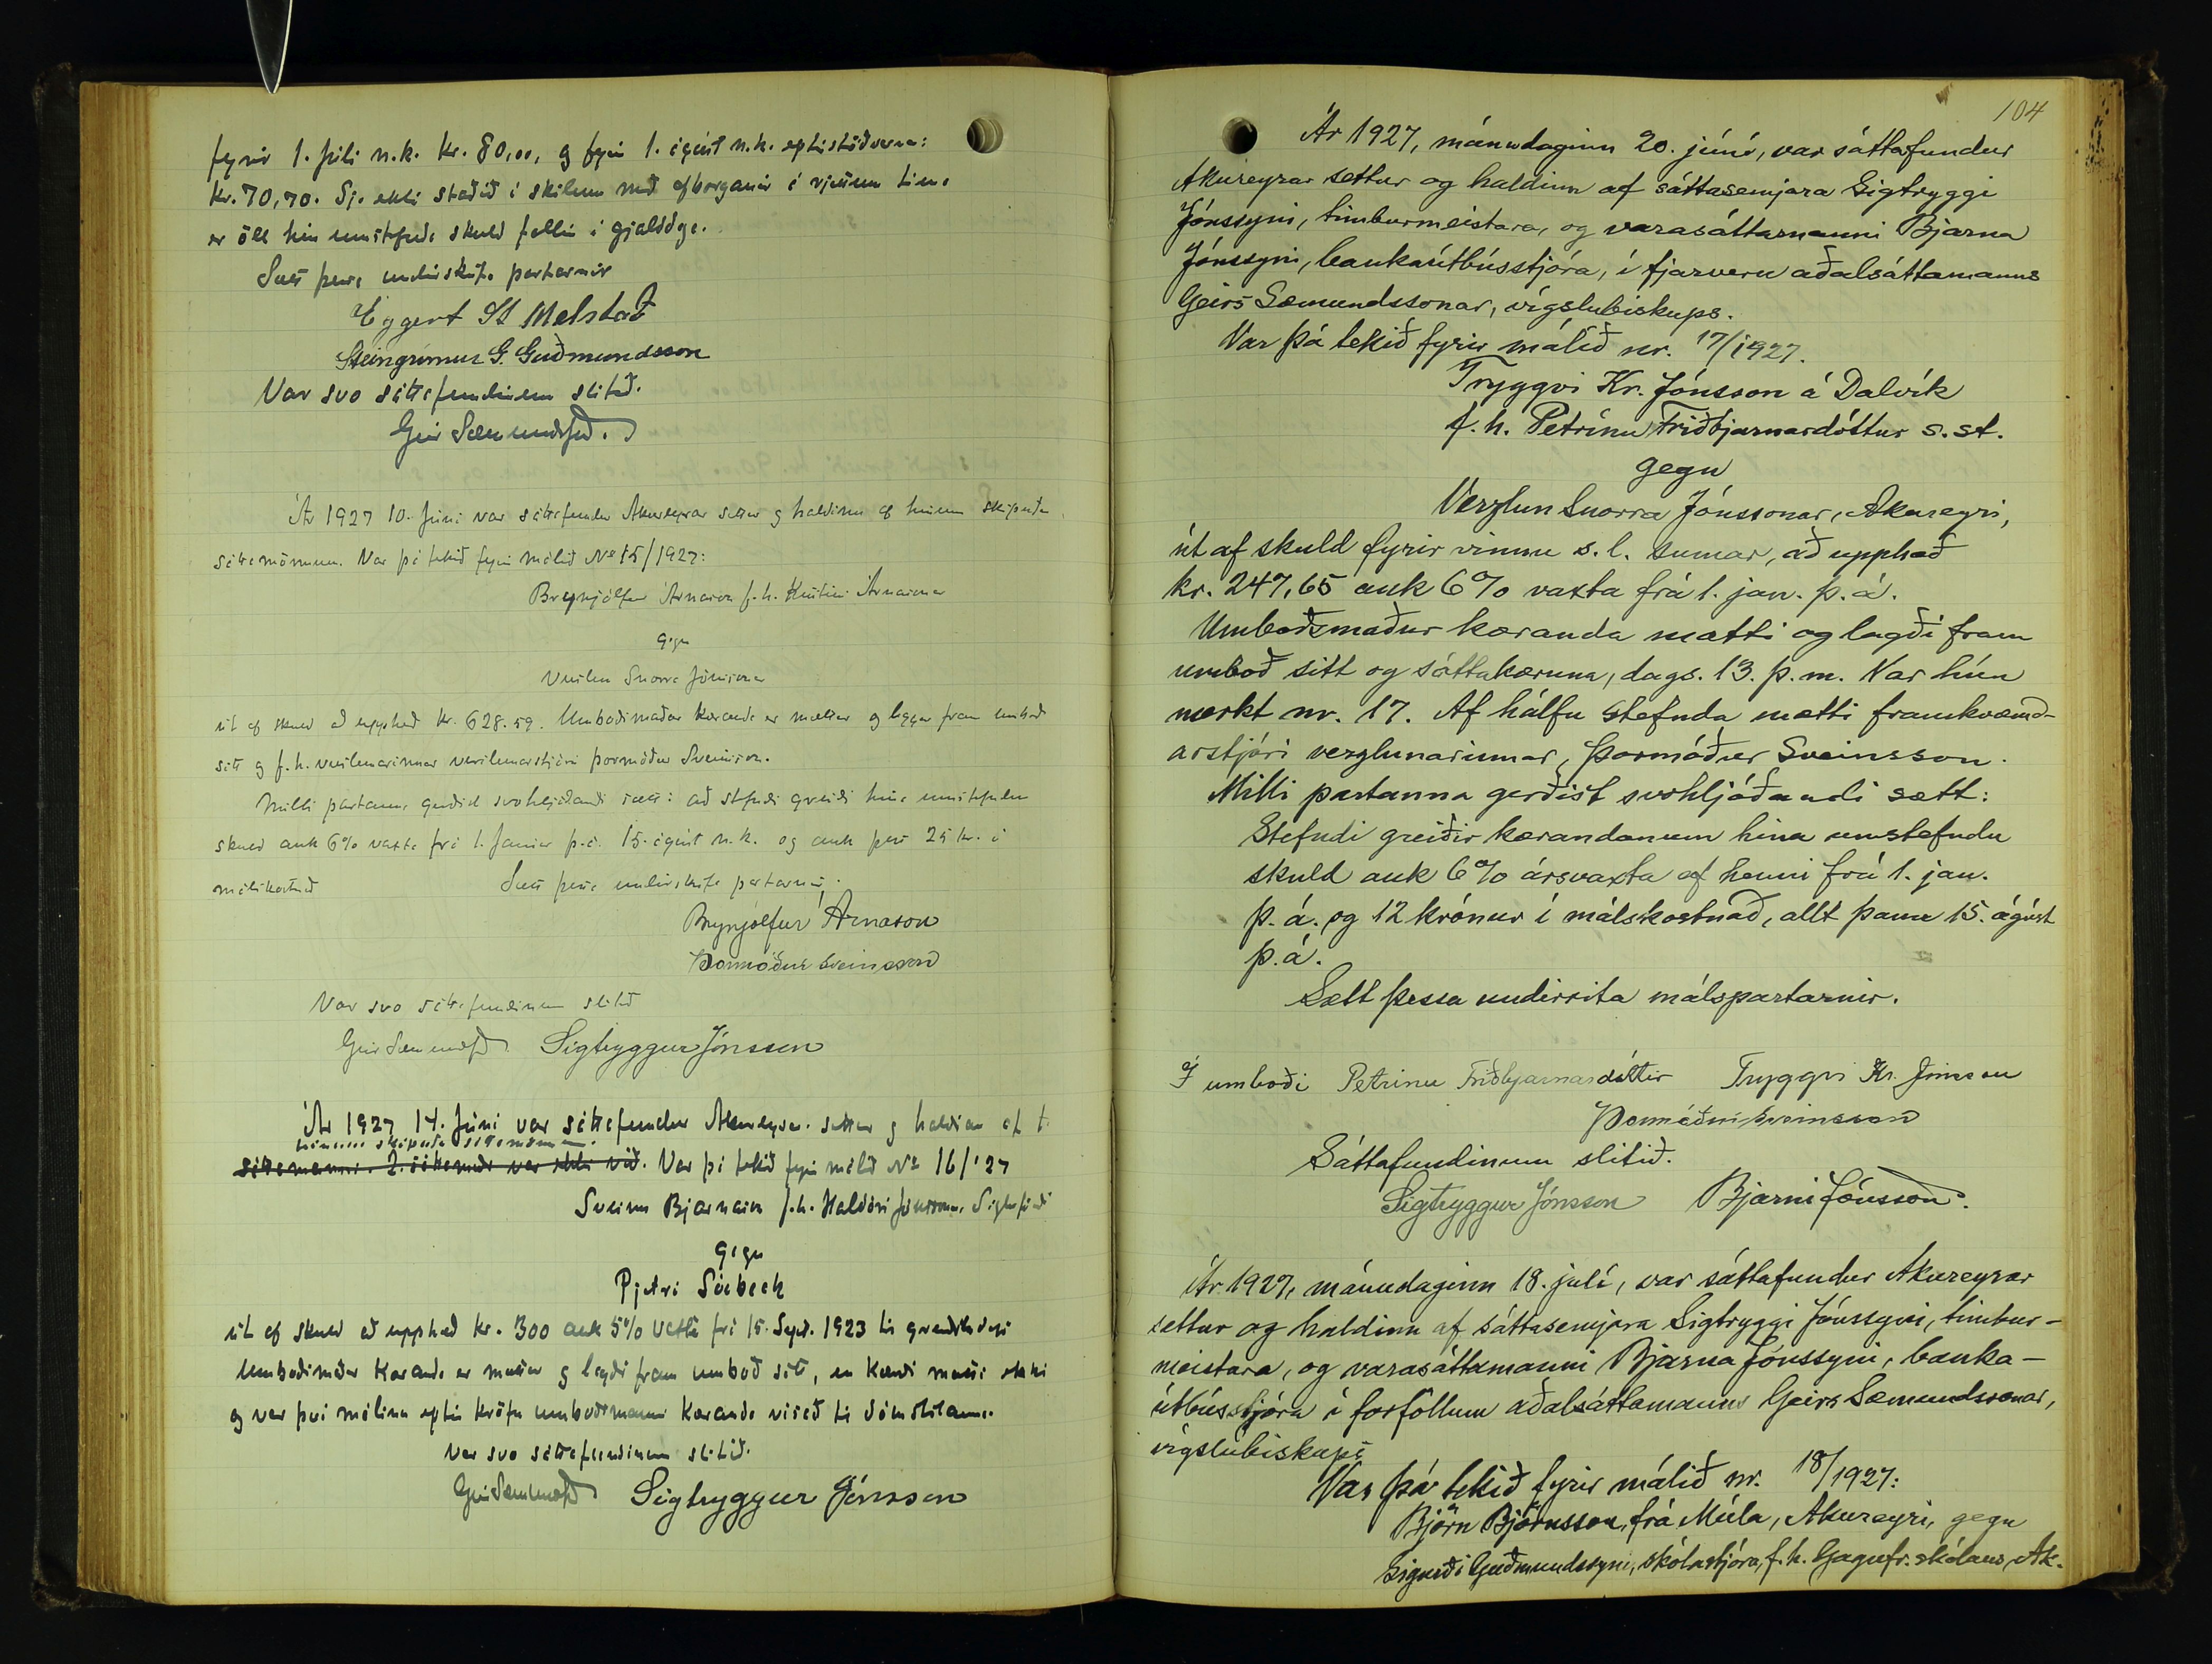 fyrir 1. júlí n.k. kr. 80,00, og fyrir 1. ágúst n.k. eptirstöðvarnar:
kr. 70,70. Sje ekki staðið í skilum með afborganir á rjettum tíma
er öll hin umstefnda skuld fallin í gjalddaga.
Sætt þessa undirskrifa partarnir
Eggert St Melstað
Steingrímur G. Guðmundsson
Var svo sáttafundinum slitið.
Geir Sæmundsson.
Ár 1927 10. Júní var sáttafundur Akureyrar settur og haldinn af hinum skipuðu
sáttamönnum. Var þá tekið fyrir málið No 15/1927:
Brynjólfur Árnason f.h. Kristins Árnasonar
gegn
Verslun Snorra Jónssonar
út af skuld að upphæð kr. 628.59. Umboðsmaður kæranda er mættur og leggur fram umboð
sitt og f.h. verslunarinnar verslunarstjóri Þormóður Sveinsson.
Milli partanna gerðist svohljóðandi sætt: að stefndi greiði hina umstefndu
skuld auk 6% vaxta frá 1. Janúar þ.á. 15. ágúst n.k. og auk þess 25 kr. í
málskostnað Sætt þessa undirskrifa partarnir.
Brynjólfur Árnason
Þormóður Sveinsson
Var svo sáttafundinum slitið
Geir Sæmundsson Sigtryggur Jónsson
Ár 1927 14. Júní var sáttafundur Akureyrar settur og haldinn af
hinum skipuðu sáttamönnum.
sáttamanni. 2. sáttamaður var ekki við. Var þá tekið fyrir málið No 16/'27
Sveinn Bjarnason f.h. Halldórs Jónssonar, Siglufirði
gegn
Pjetri Söebech
út af skuld að upphæð kr. 300 auk 5% vaxta frá 15. Sept. 1923 til greiðsludags
Umboðsmaður kæranda er mættur og lagði fram umboð sitt, en kærði mætti ekki
og var því málinu eptir kröfu umboðsmanns kæranda vísað til dómstólanna.
Var svo sáttafundinum slitið.
Geir Sæmundsson Sigtryggur Jónsson
104
Ár 1927, mánudaginn 20. júní, var sáttafundur
Akureyrar settur og haldinn af sáttasemjara Sigtryggi
Jónssyni, timburmeistara, og varasáttamanni Bjarna
Jónssyni, bankaútbússtjóra, í fjarveru aðalsáttamanns
Geirs Sæmundssonar, vígslubiskups.
Var þá tekið fyrir málið nr. 17/1927.
Tryggvi Kr. Jónsson á Dalvík
f.h. Petrínu Friðbjarnardóttur s.st.
gegn
Verzlun Snorra Jónssonar, Akureyri,
út af skuld fyrir vinnu s.l. sumar, að upphæð
kr. 247,65 auk 6% vaxta frá 1. jan. þ.á.
Umboðsmaður kæranda mætti og lagði fram
umboð sitt og sáttakæruna, dags. 13. þ.m. Var hún
merkt nr. 17. Af hálfu stefnda mætti framkvæmd-
arstjóri verzlunarinnar, Þormóður Sveinsson.
Milli partanna gerðist svohljóðandi sætt:
Stefndi greiðir kærandanum hina umstefndu
skuld auk 6% ársvaxta af henni frá 1. jan.
þ.á. og 12 krónur í málskostnað, allt þann 15. ágúst
þ.á.
Sætt þessa undirrita málspartarnir.
Í umboði Petrínu Friðbjarnardóttir Tryggvi Kr. Jónsson
Þormóður Sveinsson
Sáttafundinum slitið.
Sigtryggur Jónsson Bjarni Jónsson.
Ár 1927, mánudaginn 18. júlí, var sáttafundur Akureyrar
settur og haldinn af sáttasemjara Sigtryggi Jónssyni, timbur-
meistara, og varasáttamanni Bjarna Jónssyni, banka-
útbússtjóra í forföllum aðalsáttamanns Geirs Sæmundssonar,
vígslubiskups.
Var þá tekið fyrir málið nr. 18/1927:
Björn Björnsson, frá Múla, Akureyri, gegn
Sigurði Guðmundssyni, skólastjóra, f.h. Gagnfr. skólans Ak.